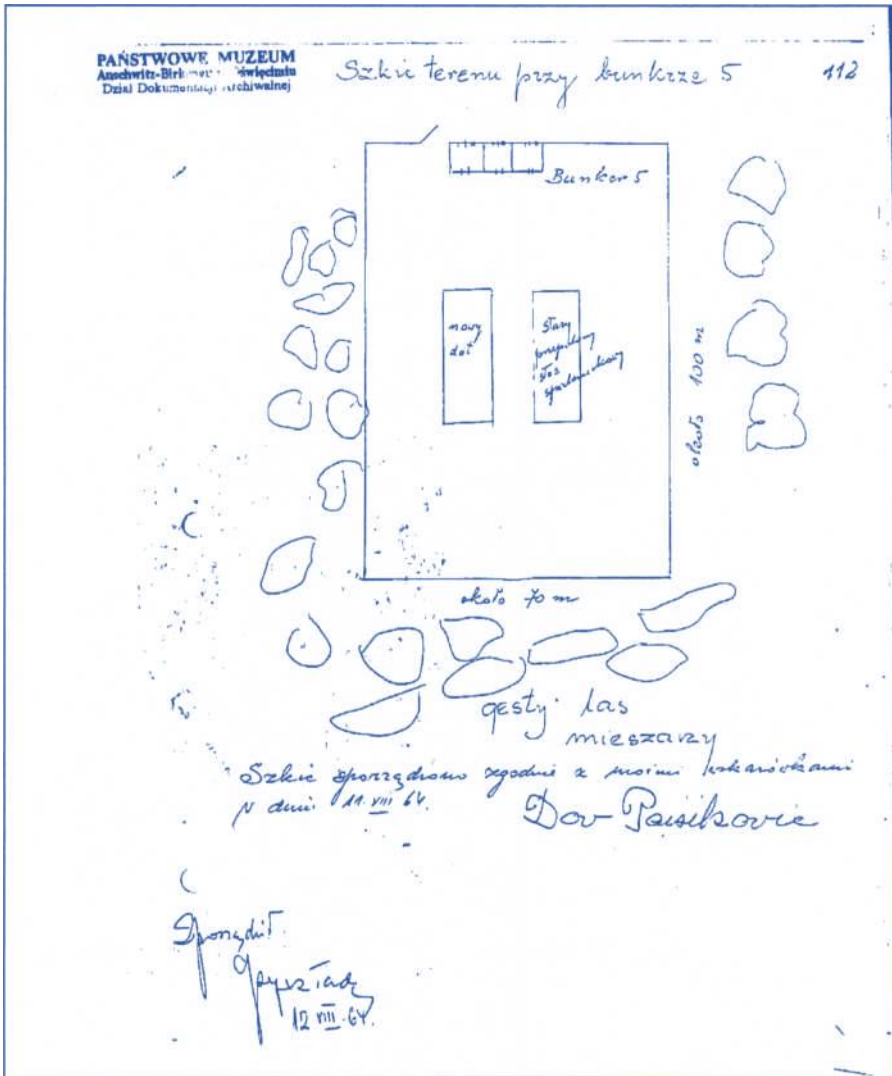 PAŃSTWOWE MUZEUM
Auschwitz-Birkenau w Oświęcimiu
Dział Dokumentacji Archiwalnej
Szkic terenu przy bunkrze 5
112
Bunker 5
nowy
dół
stary
około 100 m
około 70 m
gęsty las
mieszany
Szkic sporządzono zgodnie z moimi wskazówkami
w dniu 11.VIII 64.
Dov Paisikovic
Sporządził
12 VIII 64.